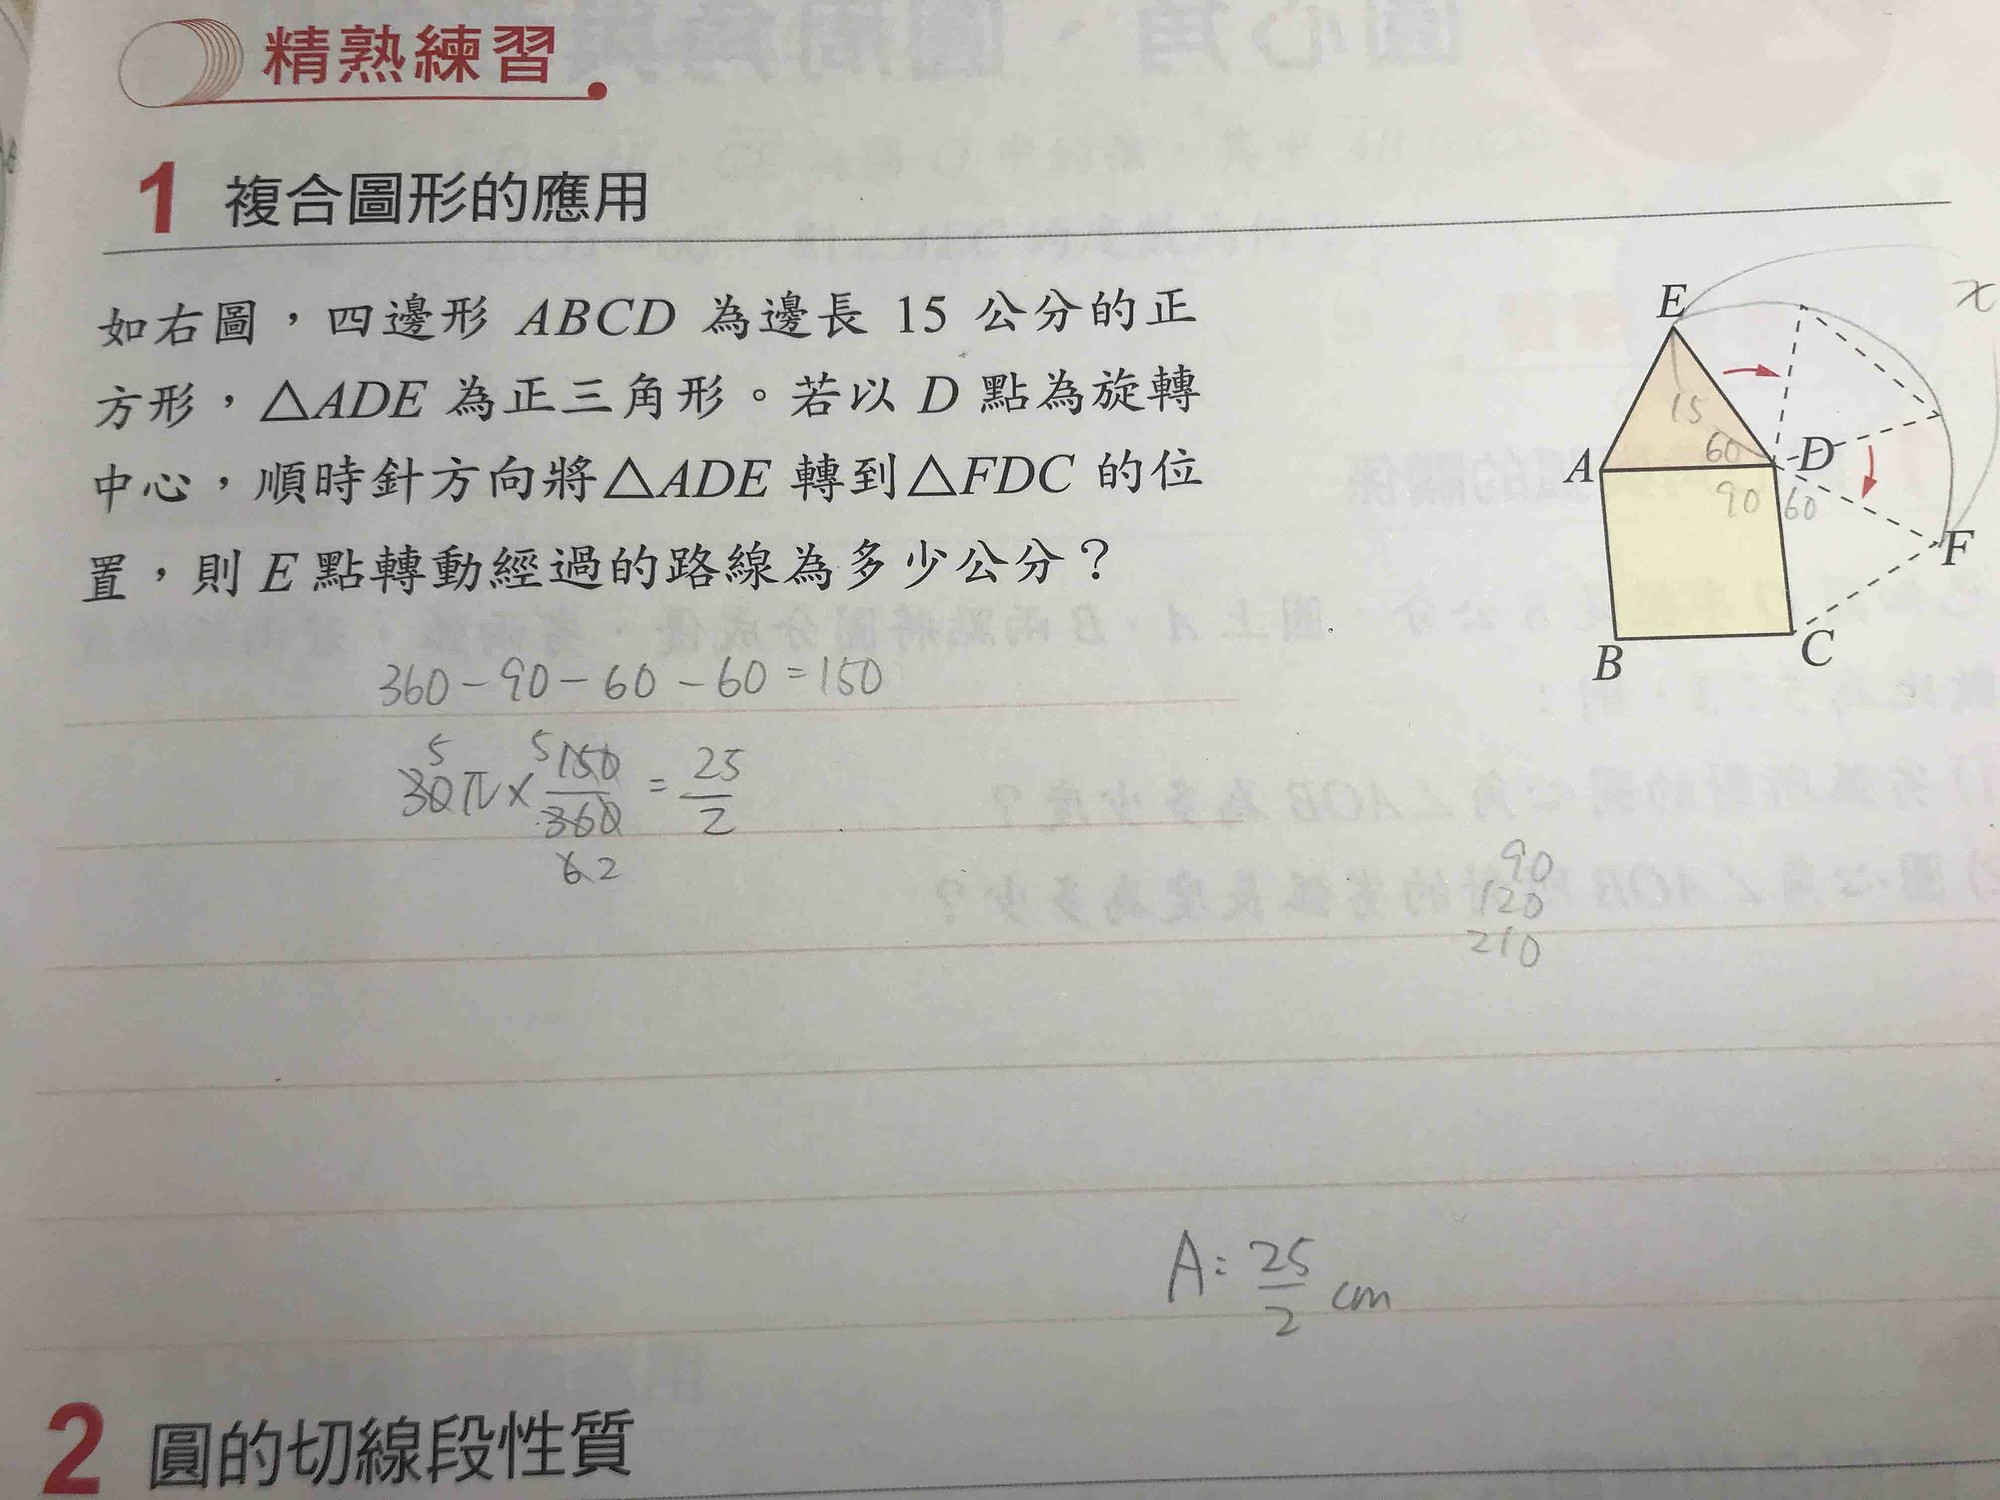 精熟練習
1 複合圖形的應用
如右圖，四邊形 ABCD 為邊長 15 公分的正
方形，△ADE 為正三角形。若以 D 點為旋轉
中心，順時針方向將△ADE 轉到△FDC 的位
置，則 E 點轉動經過的路線為多少公分？
E
x
15
60
A
D
90
60
F
B
C
360-90-60-60=150
5 5
30π×150/360=25/2
6 2
90
120
210
A:25/2 cm
2 圓的切線段性質